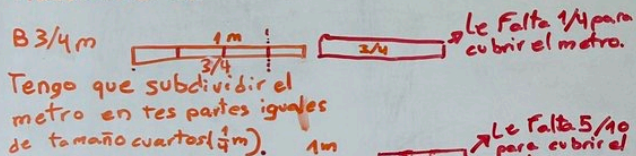 B 3/4 m
1 m
3/4
3/4
Le Falta 1/4 para
cubrir el metro.
Tengo que subdividir el
metro en tes partes iguales
de tamaño cuartos (1/4 m).
1m
Le Falta 5/10
para cubrir el